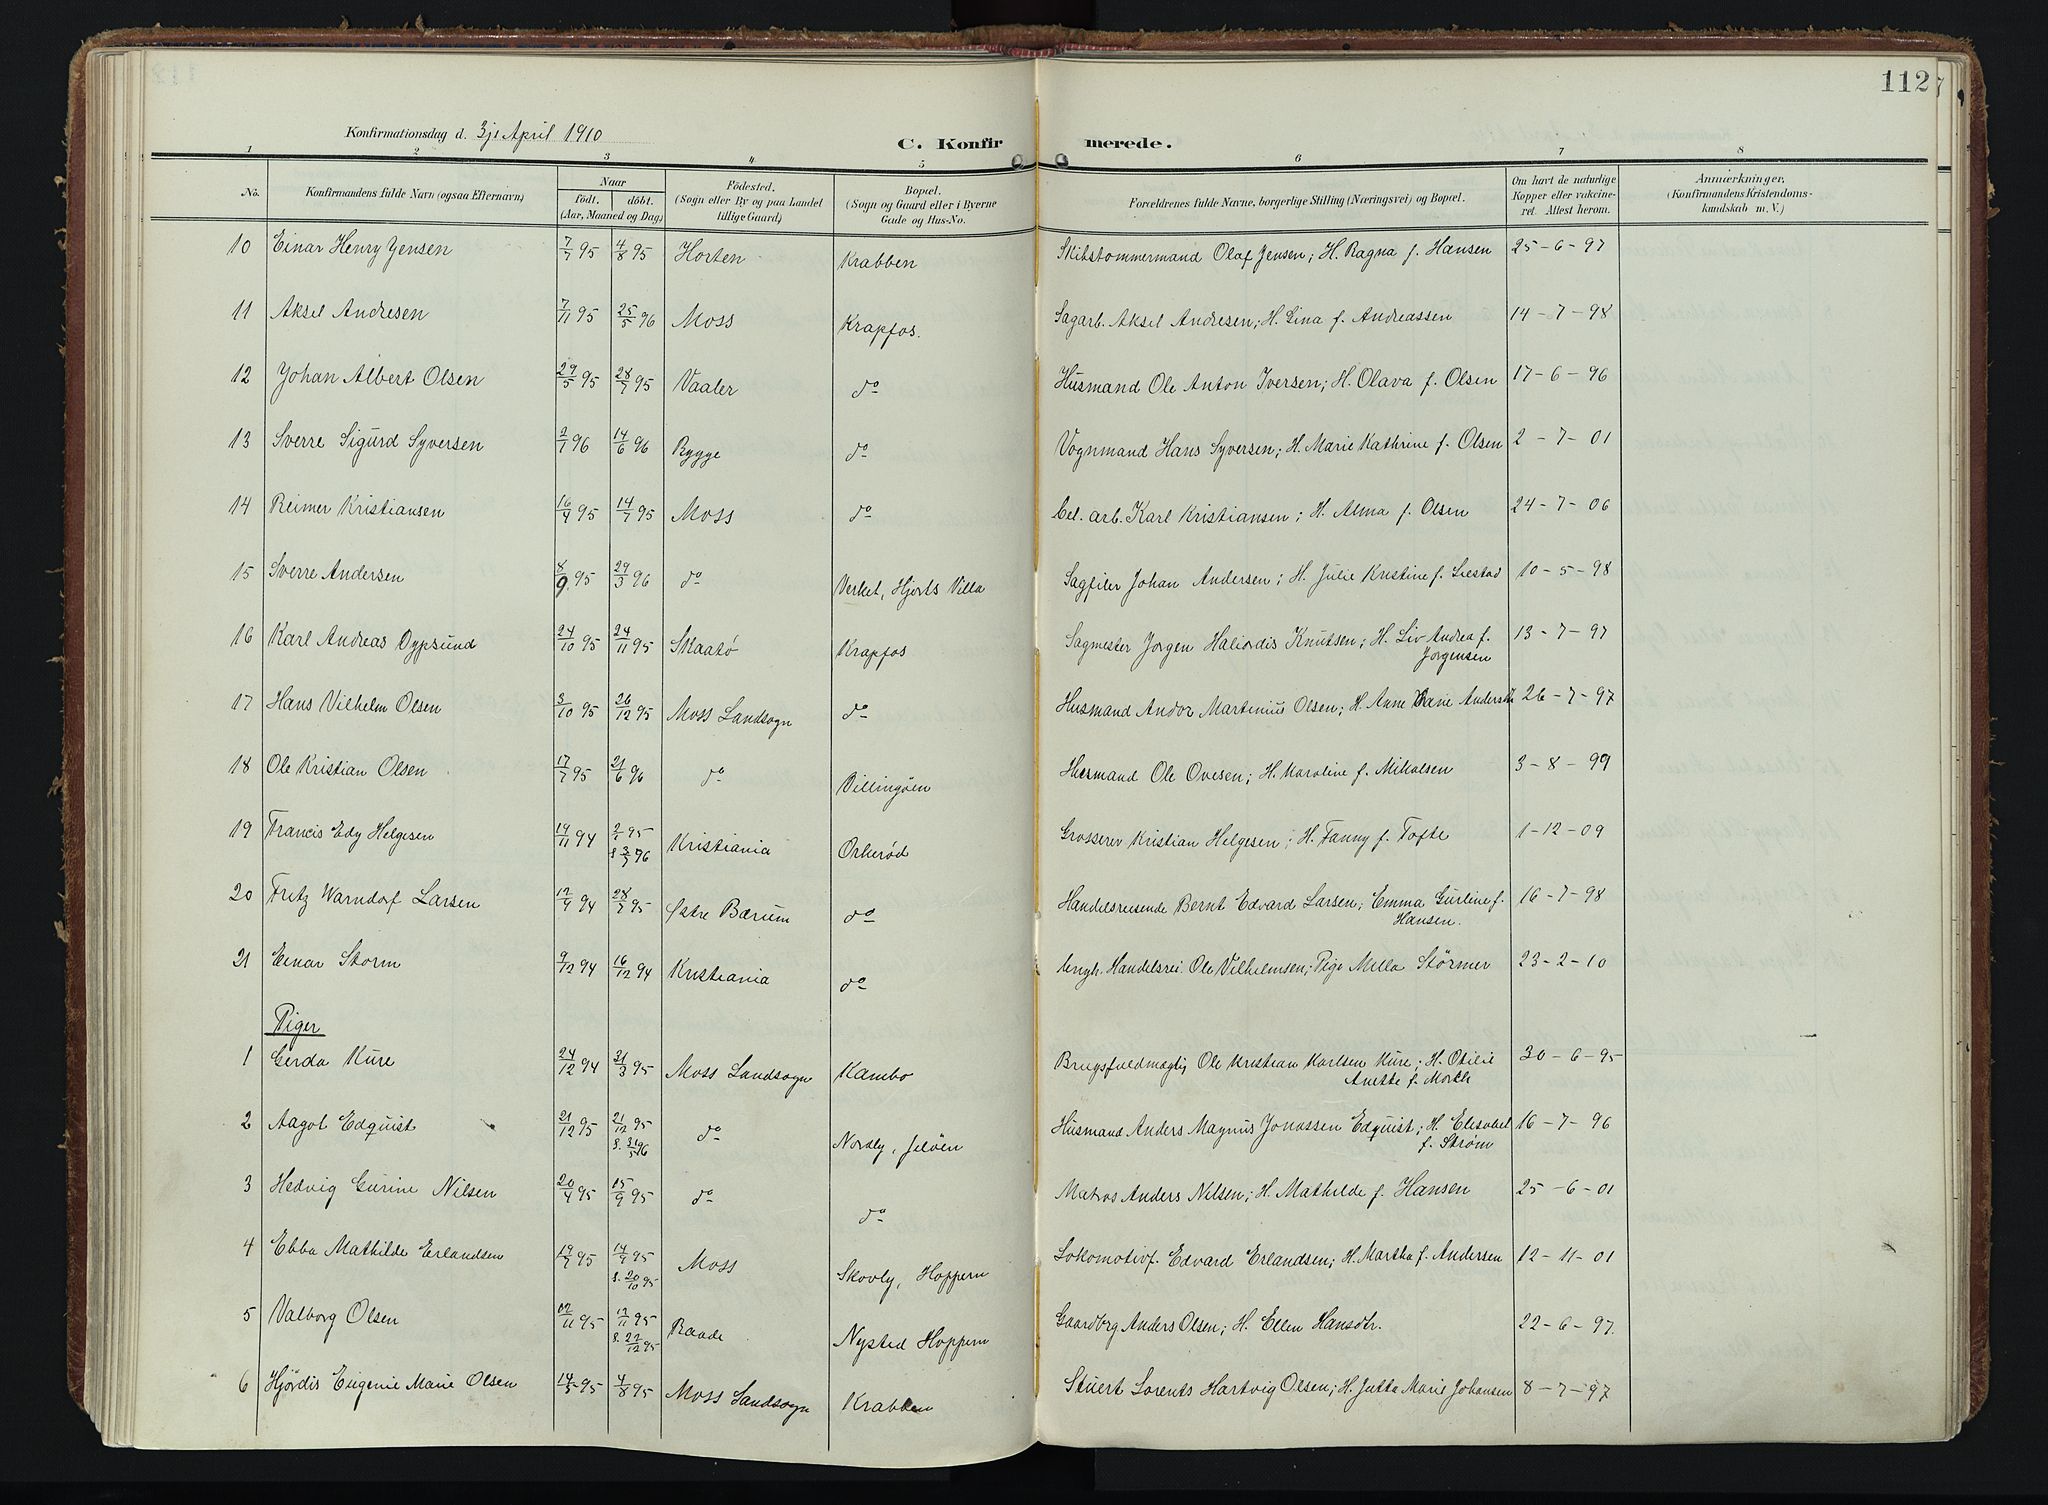 112
Konfirmationsdag d. 3je April 1910
C. Konfirmerede.
1 2 3 4 5 6 7 8
No. Konfirmandens fulde Navn (ogsaa Efternavn) Naar födt. döbt. (Aar, Maaned og Dag) Födested. (Sogn eller By og paa Landet tillige Gaard) Bopæl. (Sogn og Gaard eller i Byerne Gade og Hus-No. Forældrenes fulde Navne, borgerlige Stilling (Næringsvei) og Bopæl. Om havt de naturlige Kopper eller vakcineret. Attest herom. Anmærkninger. (Konfirmandens Kristendomskundskab m. V.)
10 Einar Henry Jensen 7/7 95 4/8 95 Horten Krabben Skibstømmermand Olaf Jensen; H. Ragna f. Hansen 25-6-97
11 Aksel Andresen 7/11 95 25/5 96 Moss Krapfos. Sagarb. Aksel Andresen; H. Gina f. Andreassen 14-7-98
12 Johan Albert Olsen 29/5 95 28/7 95 Vaaler do Husmand Ole Anton Iversen; H. Olava f. Olsen 17-6-96
13 Sverre Sigurd Syversen 2/1 96 14/6 96 Rygge do Vognmand Hans Syversen; H. Marie Kathrine f. Olsen 2-7-01
14 Reimer Kristiansen 16/4 95 14/7 95 Moss do Cel. arb. Karl Kristiansen; H. Alma f. Olsen 24-7-06
15 Sverre Andersen 8/9 95 29/3 96 do Verket, Hjorts Villa Sagfiler Johan Andersen; H. Julie Kristine f. 10-5-98
16 Karl Andreas Dypsund 24/10 95 24/11 95 Skaatø Krapfos Sagmester Jørgen Knutsen; H. Liv Andrea f. Jørgensen 13-7-97
17 Hans Vilhelm Olsen 3/10 95 26/12 95 Moss Landsogn do Husmand Andor Martinius Olsen; H. Anne 26-7-97
18 Ole Kristian Olsen 17/7 95 21/6 96 do Billingøen Husmand Ole Ovesen; H. Karoline f. Mikalsen 3-8-99
19 Francis Edy Helgesen 19/11 94 95 96 Kristiania Orkerød Grosserer Kristian Helgesen; H. Fanny f. Tofte 1-12-09
20 Fritz Warndorf Larsen 17/9 94 28/7 95 Østre Bærum do Handelsreisende Bernt Edvard Larsen; Emma Gurline f. Hansen. 16-7-98
21 Einar Storm 9/12 94 16/12 94 Kristiania do Ungk. Handelsrei. Ole Vilhelmsen; Pige Milla Størmer 23-2-10
Piger
1 Gerda Kure 24/12 94 31/3 95 Moss Landsogn Kambo Brugsfuldmægtig Ole Kristian Karlsen Kure; H. Otilie Anette f. Mørch 30-6-95
2 Aagot Edquist 21/12 95 21/12 95 Nordby, Jeløen do Husmand Anders Magnus Jonassen Edquist; H. Elisabet f. Strøm 16-7-96
3 Hedvig Gurine Nilsen 20/4 95 15/9 95 do do Matros Anders Nilsen; H. Mathilde f. Hansen 25-6-01
4 Ebba Mathilde Erlandsen 19/7 95 14/9 95 s. 20/10 95 Moss Skovly, Hoppern Lokomotivf. Edvard Erlandsen; H. Martha f. Andersen 12-11-01
5 Valborg Olsen 95 17/11 95 s. 22/12 95 Raade Nysted Hoppern Gaardbrg. Anders Olsen; H. Ellen Hansdtr. 22-6-97
6 Hjørdis Eugenie Marie Olsen 14/5 95 4/8 95 Moss Landsogn Krabben Stuert Lorents Hartvig Olsen; H. Jutta Marie Johansen 8-7-97